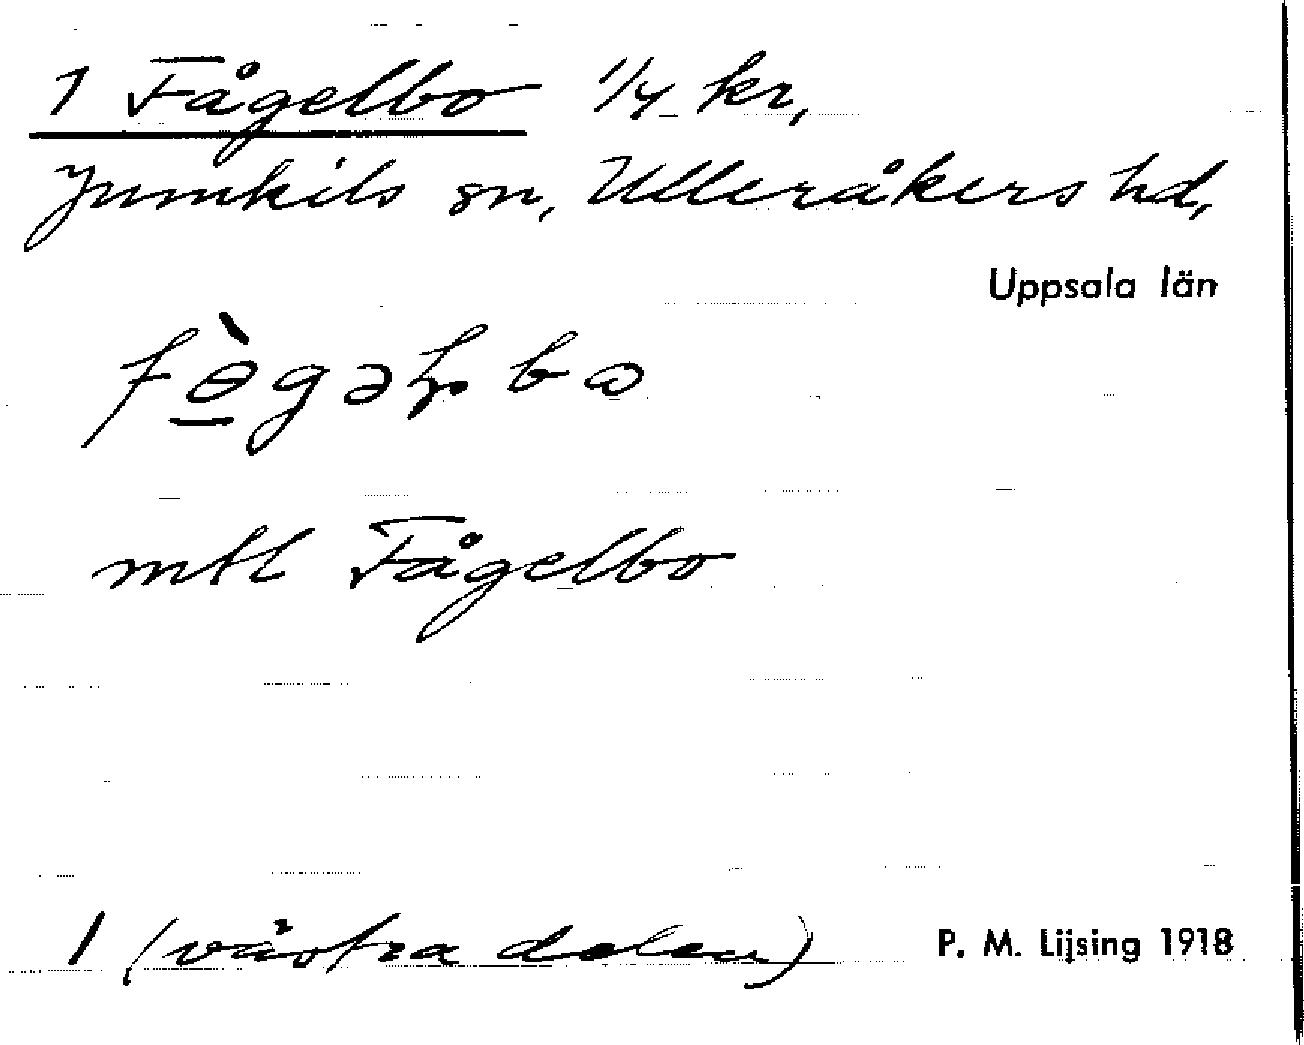 1 Fågelbo 1/4 kr,
Jumkils sn, Ulleråkers hd,
Uppsala län
mtl Fågelbo
1 (västra delen)
P. M. Lijsing 1918